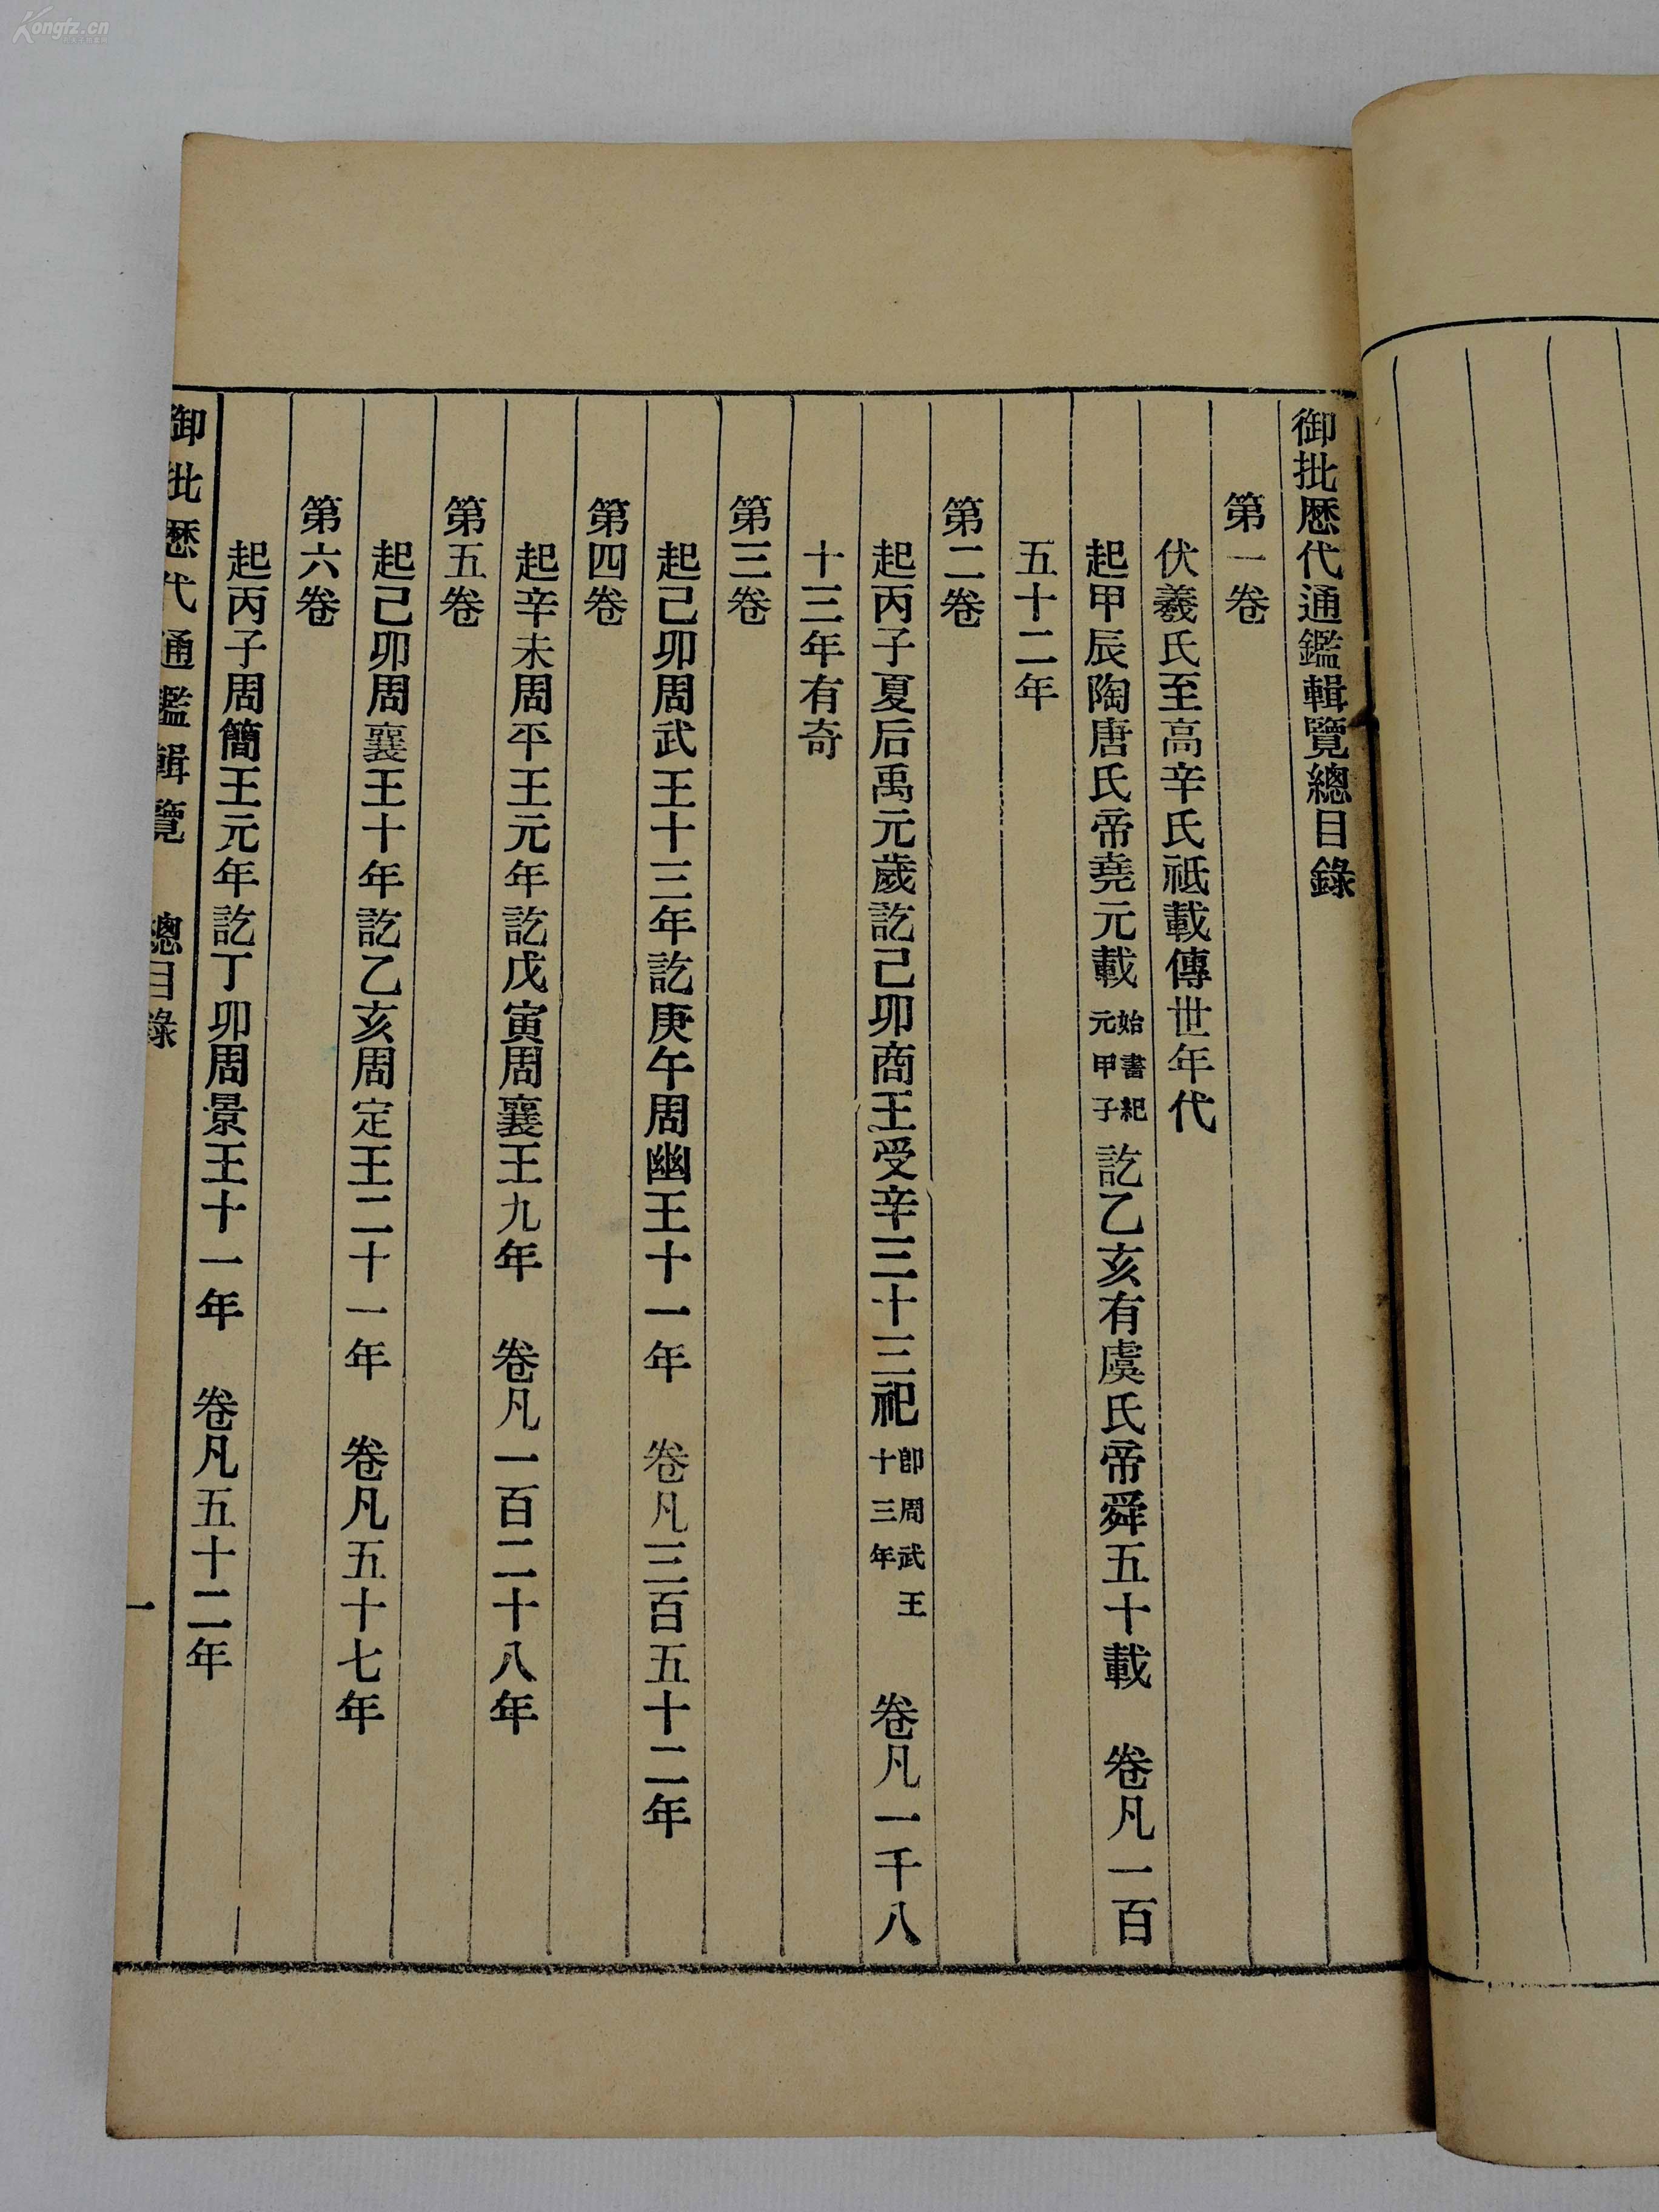 御批歷代通鑑輯覽總目錄
第一卷
伏羲氏至高辛氏祗載傳世年代
起甲辰陶唐氏帝堯元載始書紀元甲子訖乙亥有虞氏帝舜五十載 卷凡一百
五十二年
第二卷
起丙子夏后禹元歲訖己卯商王受辛三十三祀即周武王十三年 卷凡一千八
十三年有奇
第三卷
起己卯周武王十三年訖庚午周幽王十一年 卷凡三百五十二年
第四卷
起辛未周平王元年訖戊寅周襄王九年 卷凡一百二十八年
第五卷
起己卯周襄王十年訖乙亥周定王二十一年 卷凡五十七年
第六卷
起丙子周簡王元年訖丁卯周景王十一年 卷凡五十二年
御批歷代通鑑輯覽 總目錄 一
Kongfz.cn